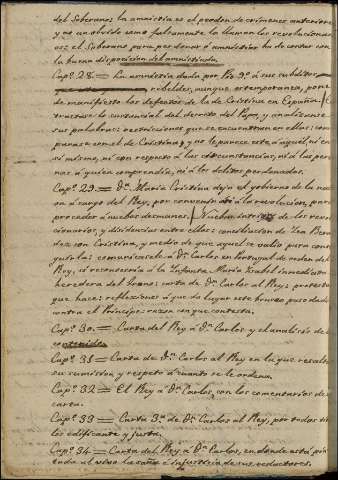 del Soberano: la amnistia es el perdon de crimenes anteriores
y no un olvido como falsamente lo llaman los revolucionari-
os: el Soberano para perdonar ó amnistiar ha de contar con
la buena disposicion del amnistiado.
Cap.º 28 = La amnistia dada por Pio 9.º á sus subditos
rebeldes, aunque extemporanea, pone
de manifiesto los defectos de la de Cristina en España.
tractase lo sustancial del decreto del Papa, y analizanse
sus palabras: restricciones que se encuentran en ellas: com-
parase con el de Cristina, y no le parece este á aquel, ni en
sí mismo, ni con respeto á las circunstancias, ni á las perso-
nas á quien comprendia, ni á los delitos perdonados.
Cap.º 29 = D.ª Maria Cristina deja el gobierno de la naci-
on á cargo del Rey, por convenir así á la revolucion, para
proceder á nuevos desmanes. Nuevas intrigas de los revolu-
cionarios, y disidencias entre ellos: conciliacion de Zea Bermu-
dez con Cristina, y medio de que aquel se valio para conse-
guirla: comunicasele á D.n Carlos en Portugal de orden del
Rey, si reconoceria á la Infanta Maria Isabel inmediata
heredera del trono: carta de D.n Carlos al Rey; protesta
que hace: reflexiones á que da lugar este brusco paso dado
contra el Principe: razon con que contesta.
Cap.º 30 = Carta del Rey á D.n Carlos y el analisis de su
contenido.
Cap.º 31 = Carta de D.n Carlos al Rey en la que resalta
su sumision, y respeto á cuanto se le ordena.
Cap.º 32 = El Rey á D.n Carlos, con los comentarios de su
carta.
Cap.º 33 = Carta 3.ª de D.n Carlos al Rey, por todos títu-
los edificante y justa.
Cap.º 34 = Carta del Rey á D.n Carlos, en donde está pin-
tada al vivo la saña é injusticia de sus seductores.